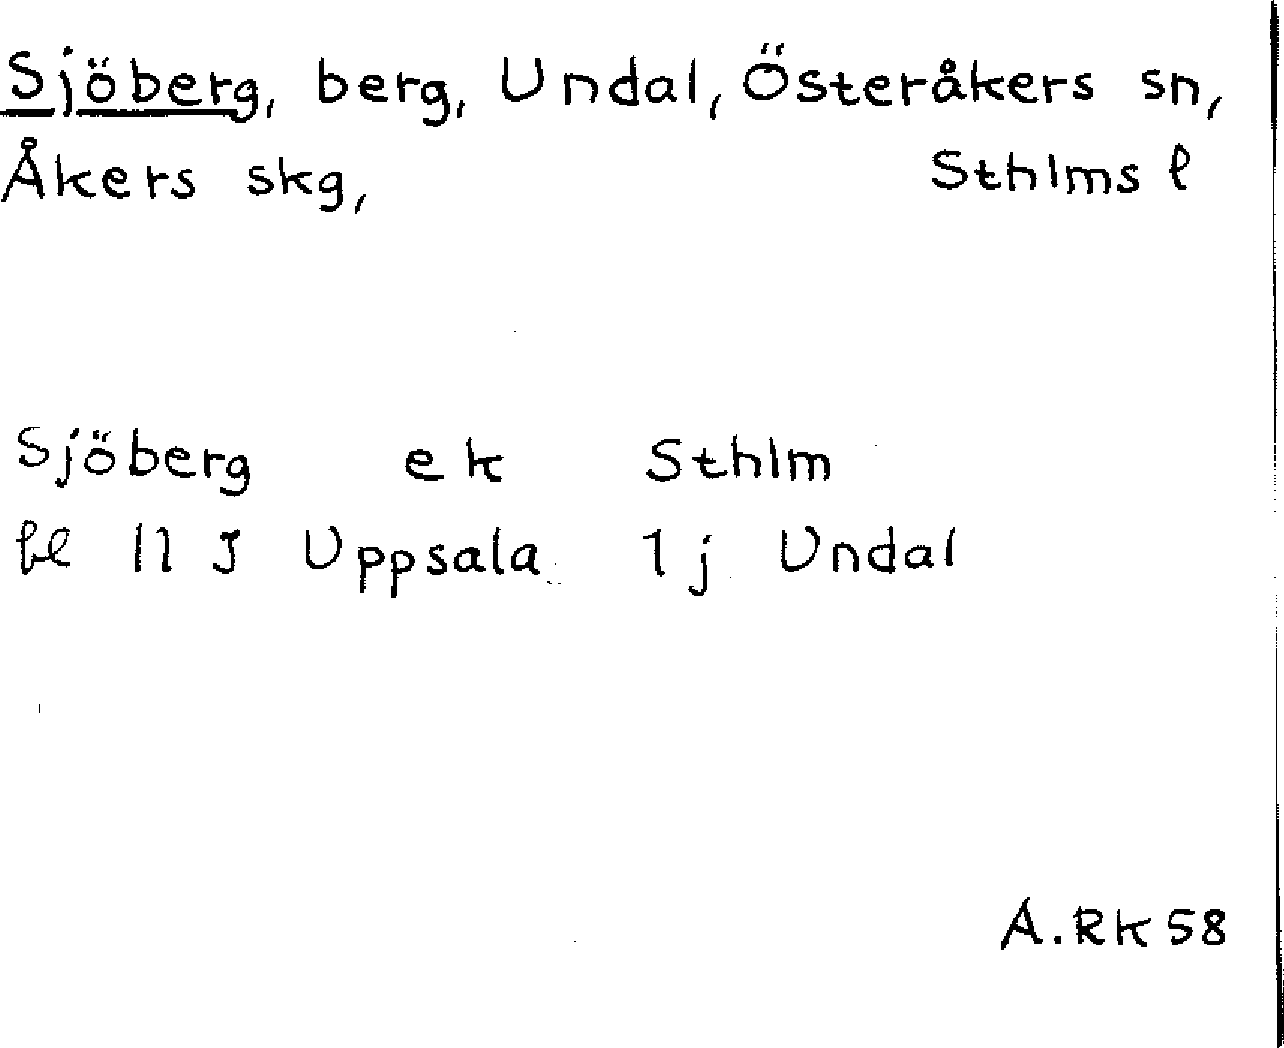 Sjöberg, berg, Undal, Österåkers sn,
Åkers skg, Sthlms l
Sjöberg ek Sthlm
bl 11 J Uppsala 1j Undal
A.RK 58